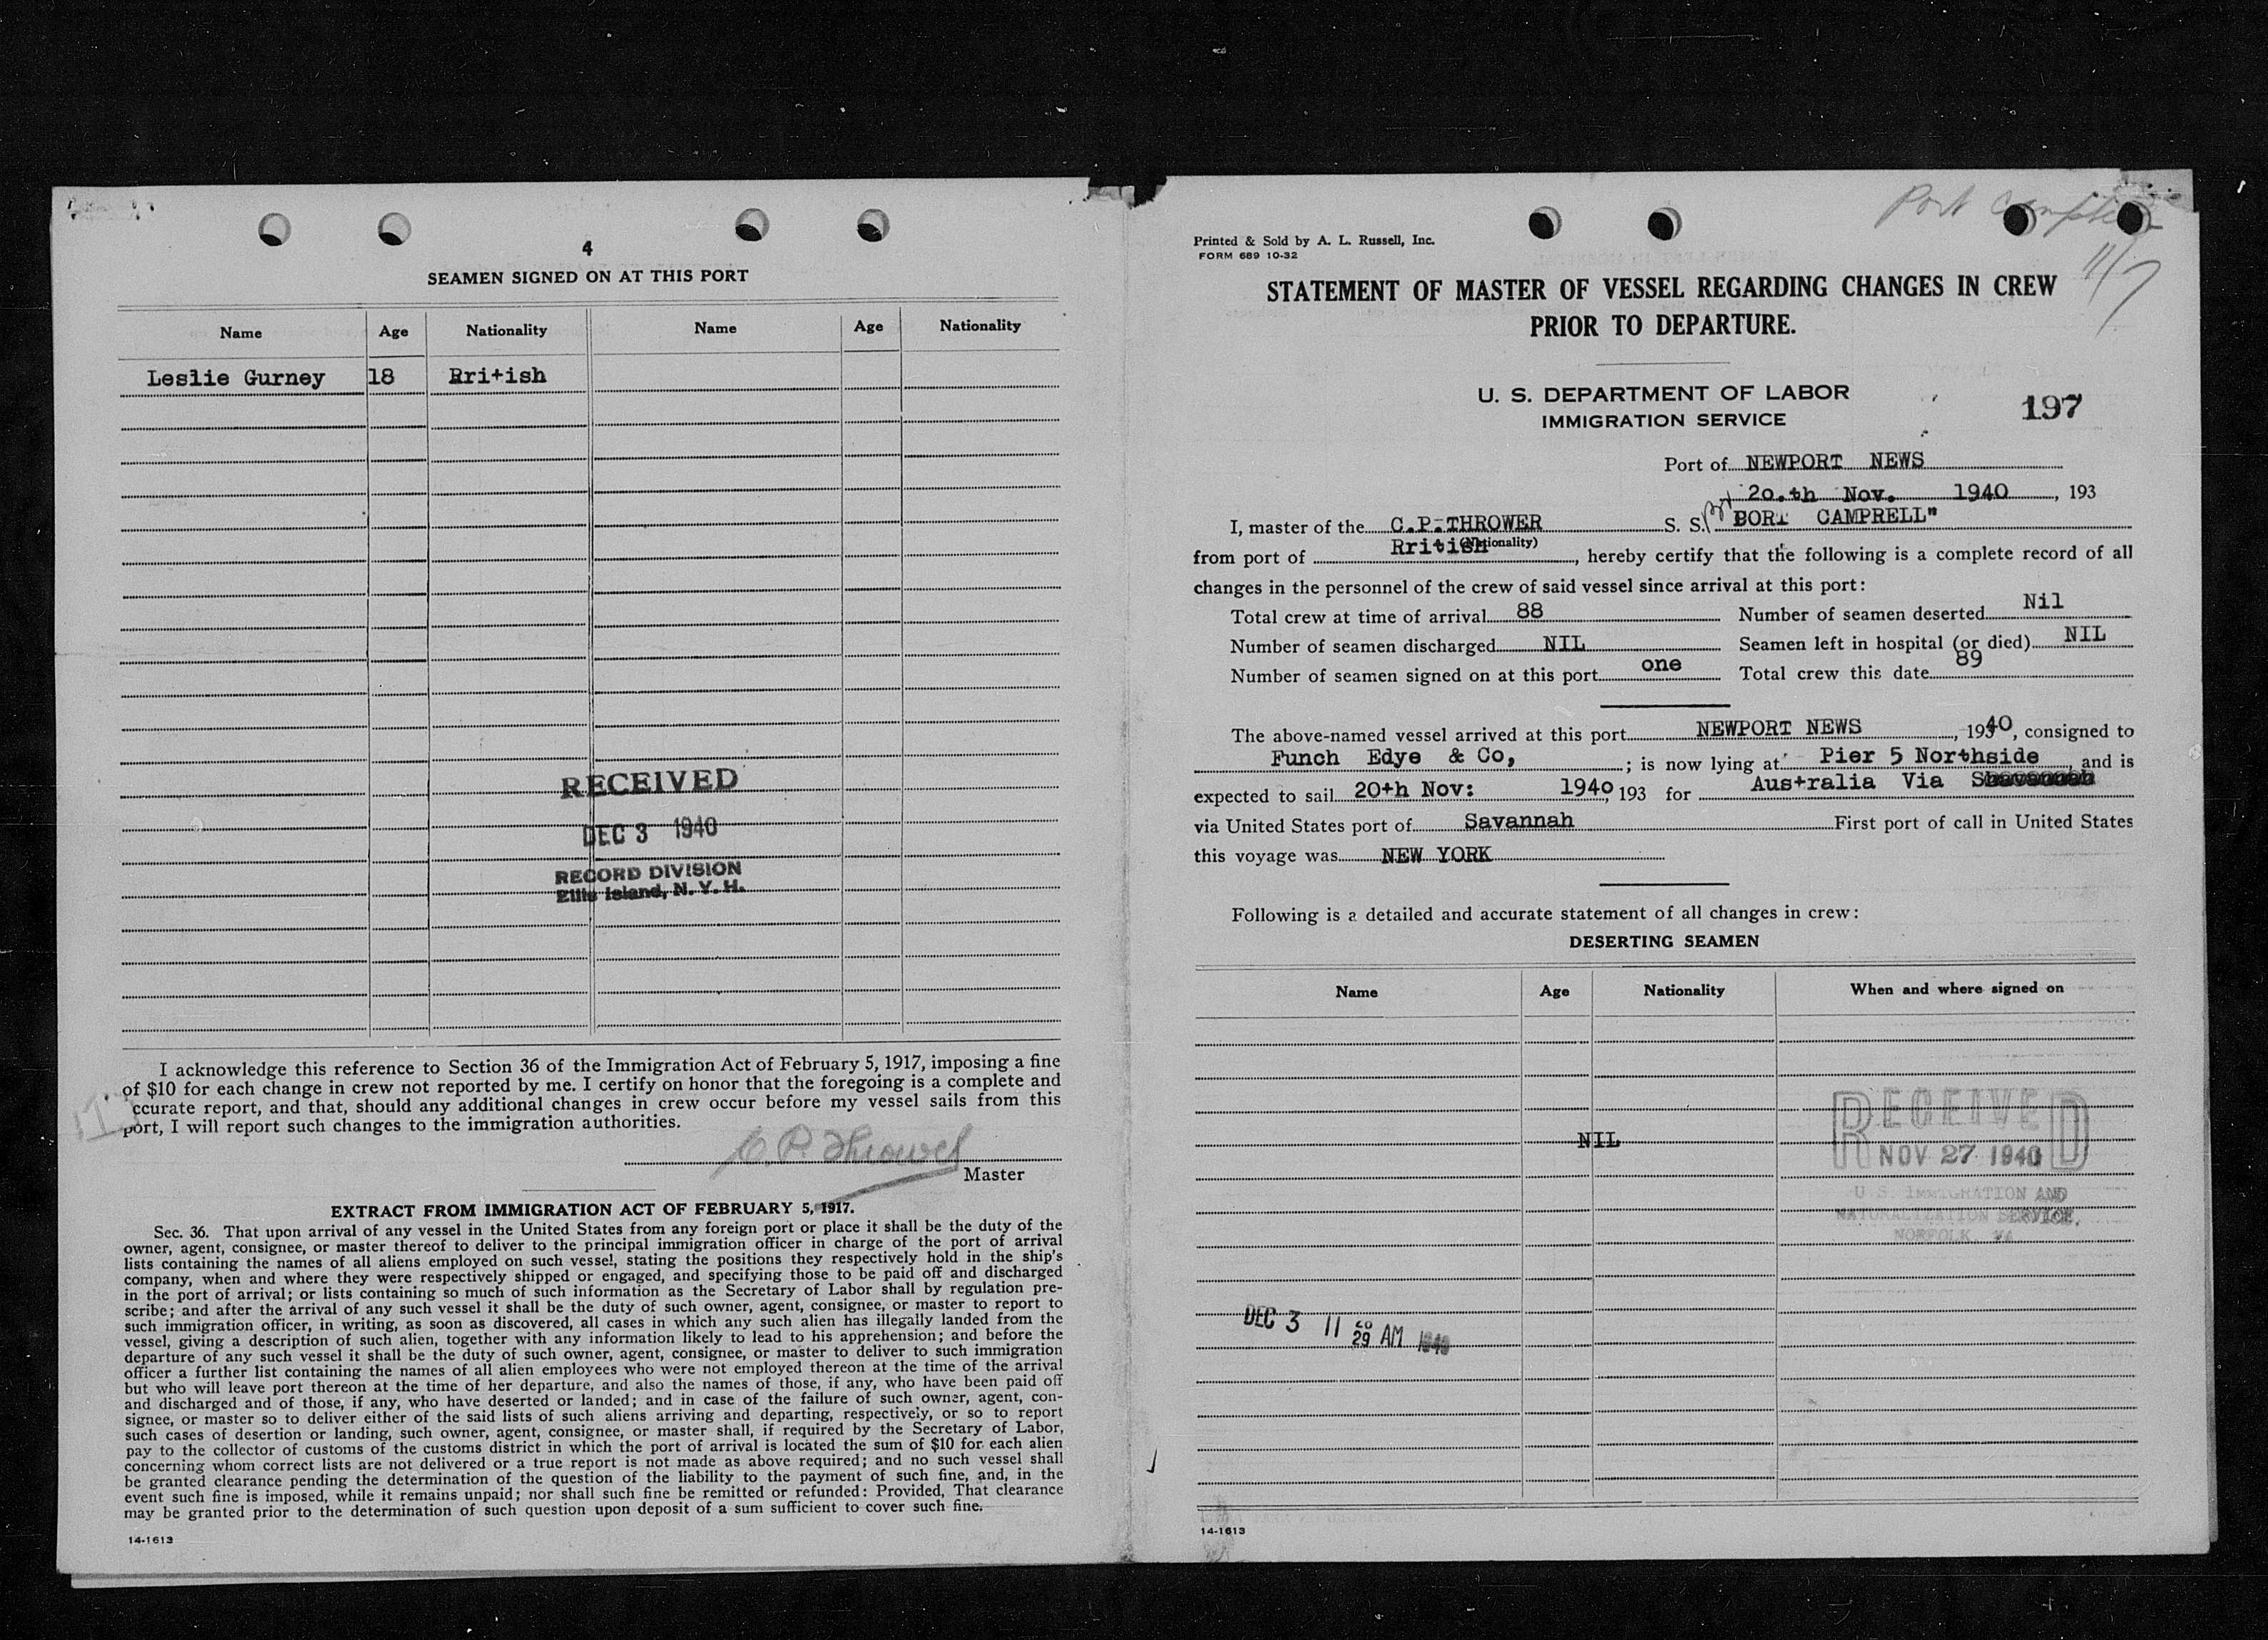 4
SEAMEN SIGNED ON AT THIS PORT
Name Age Nationality Name Age Nationality
Leslie Gurney 18 Rri+ish
RECEIVED
DEC 3 1940
RECORD DIVISION
Ellis Island, N. Y. H.
I acknowledge this reference to Section 36 of the Immigration Act of February 5, 1917, imposing a fine
of $10 for each change in crew not reported by me. I certify on honor that the foregoing is a complete and
ccurate report, and that, should any additional changes in crew occur before my vessel sails from this
port, I will report such changes to the immigration authorities.
C. P. Thrower
Master
EXTRACT FROM IMMIGRATION ACT OF FEBRUARY 5, 1917.
Sec. 36. That upon arrival of any vessel in the United States from any foreign port or place it shall be the duty of the
owner, agent, consignee, or master thereof to deliver to the principal immigration officer in charge of the port of arrival
lists containing the names of all aliens employed on such vessel, stating the positions they respectively hold in the ship's
company, when and where they were respectively shipped or engaged, and specifying those to be paid off and discharged
in the port of arrival; or lists containing so much of such information as the Secretary of Labor shall by regulation pre-
scribe; and after the arrival of any such vessel it shall be the duty of such owner, agent, consignee, or master to report to
such immigration officer, in writing, as soon as discovered, all cases in which any such alien has illegally landed from the
vessel, giving a description of such alien, together with any information likely to lead to his apprehension; and before the
departure of any such vessel it shall be the duty of such owner, agent, consignee, or master to deliver to such immigration
officer a further list containing the names of all alien employees who were not employed thereon at the time of the arrival
but who will leave port thereon at the time of her departure, and also the names of those, if any, who have been paid off
and discharged and of those, if any, who have deserted or landed; and in case of the failure of such owner, agent, con-
signee, or master so to deliver either of the said lists of such aliens arriving and departing, respectively, or so to report
such cases of desertion or landing, such owner, agent, consignee, or master shall, if required by the Secretary of Labor,
pay to the collector of customs of the customs district in which the port of arrival is located the sum of $10 for each alien
concerning whom correct lists are not delivered or a true report is not made as above required; and no such vessel shall
be granted clearance pending the determination of the question of the liability to the payment of such fine, and, in the
event such fine is imposed, while it remains unpaid; nor shall such fine be remitted or refunded: Provided, That clearance
may be granted prior to the determination of such question upon deposit of a sum sufficient to cover such fine.
14-1613
Port Campbell
11/7
Printed & Sold by A. L. Russell, Inc.
FORM 689 10-32
STATEMENT OF MASTER OF VESSEL REGARDING CHANGES IN CREW
PRIOR TO DEPARTURE.
U. S. DEPARTMENT OF LABOR
IMMIGRATION SERVICE
197
Port of NEWPORT NEWS
20.th Nov. 1940, 193
I, master of the C.P.THROWER S. S. Br PORT CAMPRELL"
(Nationality)
from port of Rritish, hereby certify that the following is a complete record of all
changes in the personnel of the crew of said vessel since arrival at this port:
Total crew at time of arrival 88 Number of seamen deserted Nil
Number of seamen discharged NIL Seamen left in hospital (or died) NIL
Number of seamen signed on at this port one Total crew this date 89
The above-named vessel arrived at this port NEWPORT NEWS, 1940, consigned to
Funch Edye & Co, ; is now lying at Pier 5 Northside, and is
expected to sail 20+h Nov: 1940, 193 for Aus+ralia Via
via United States port of Savannah First port of call in United States
this voyage was NEW YORK
Following is a detailed and accurate statement of all changes in crew:
DESERTING SEAMEN
Name Age Nationality When and where signed on
NIL
RECEIVED
NOV 27 1940
U. S. IMMIGRATION AND
NATURALIZATION SERVICE,
NORFOLK, VA
DEC 3 11 29 AM 1940
14-1613